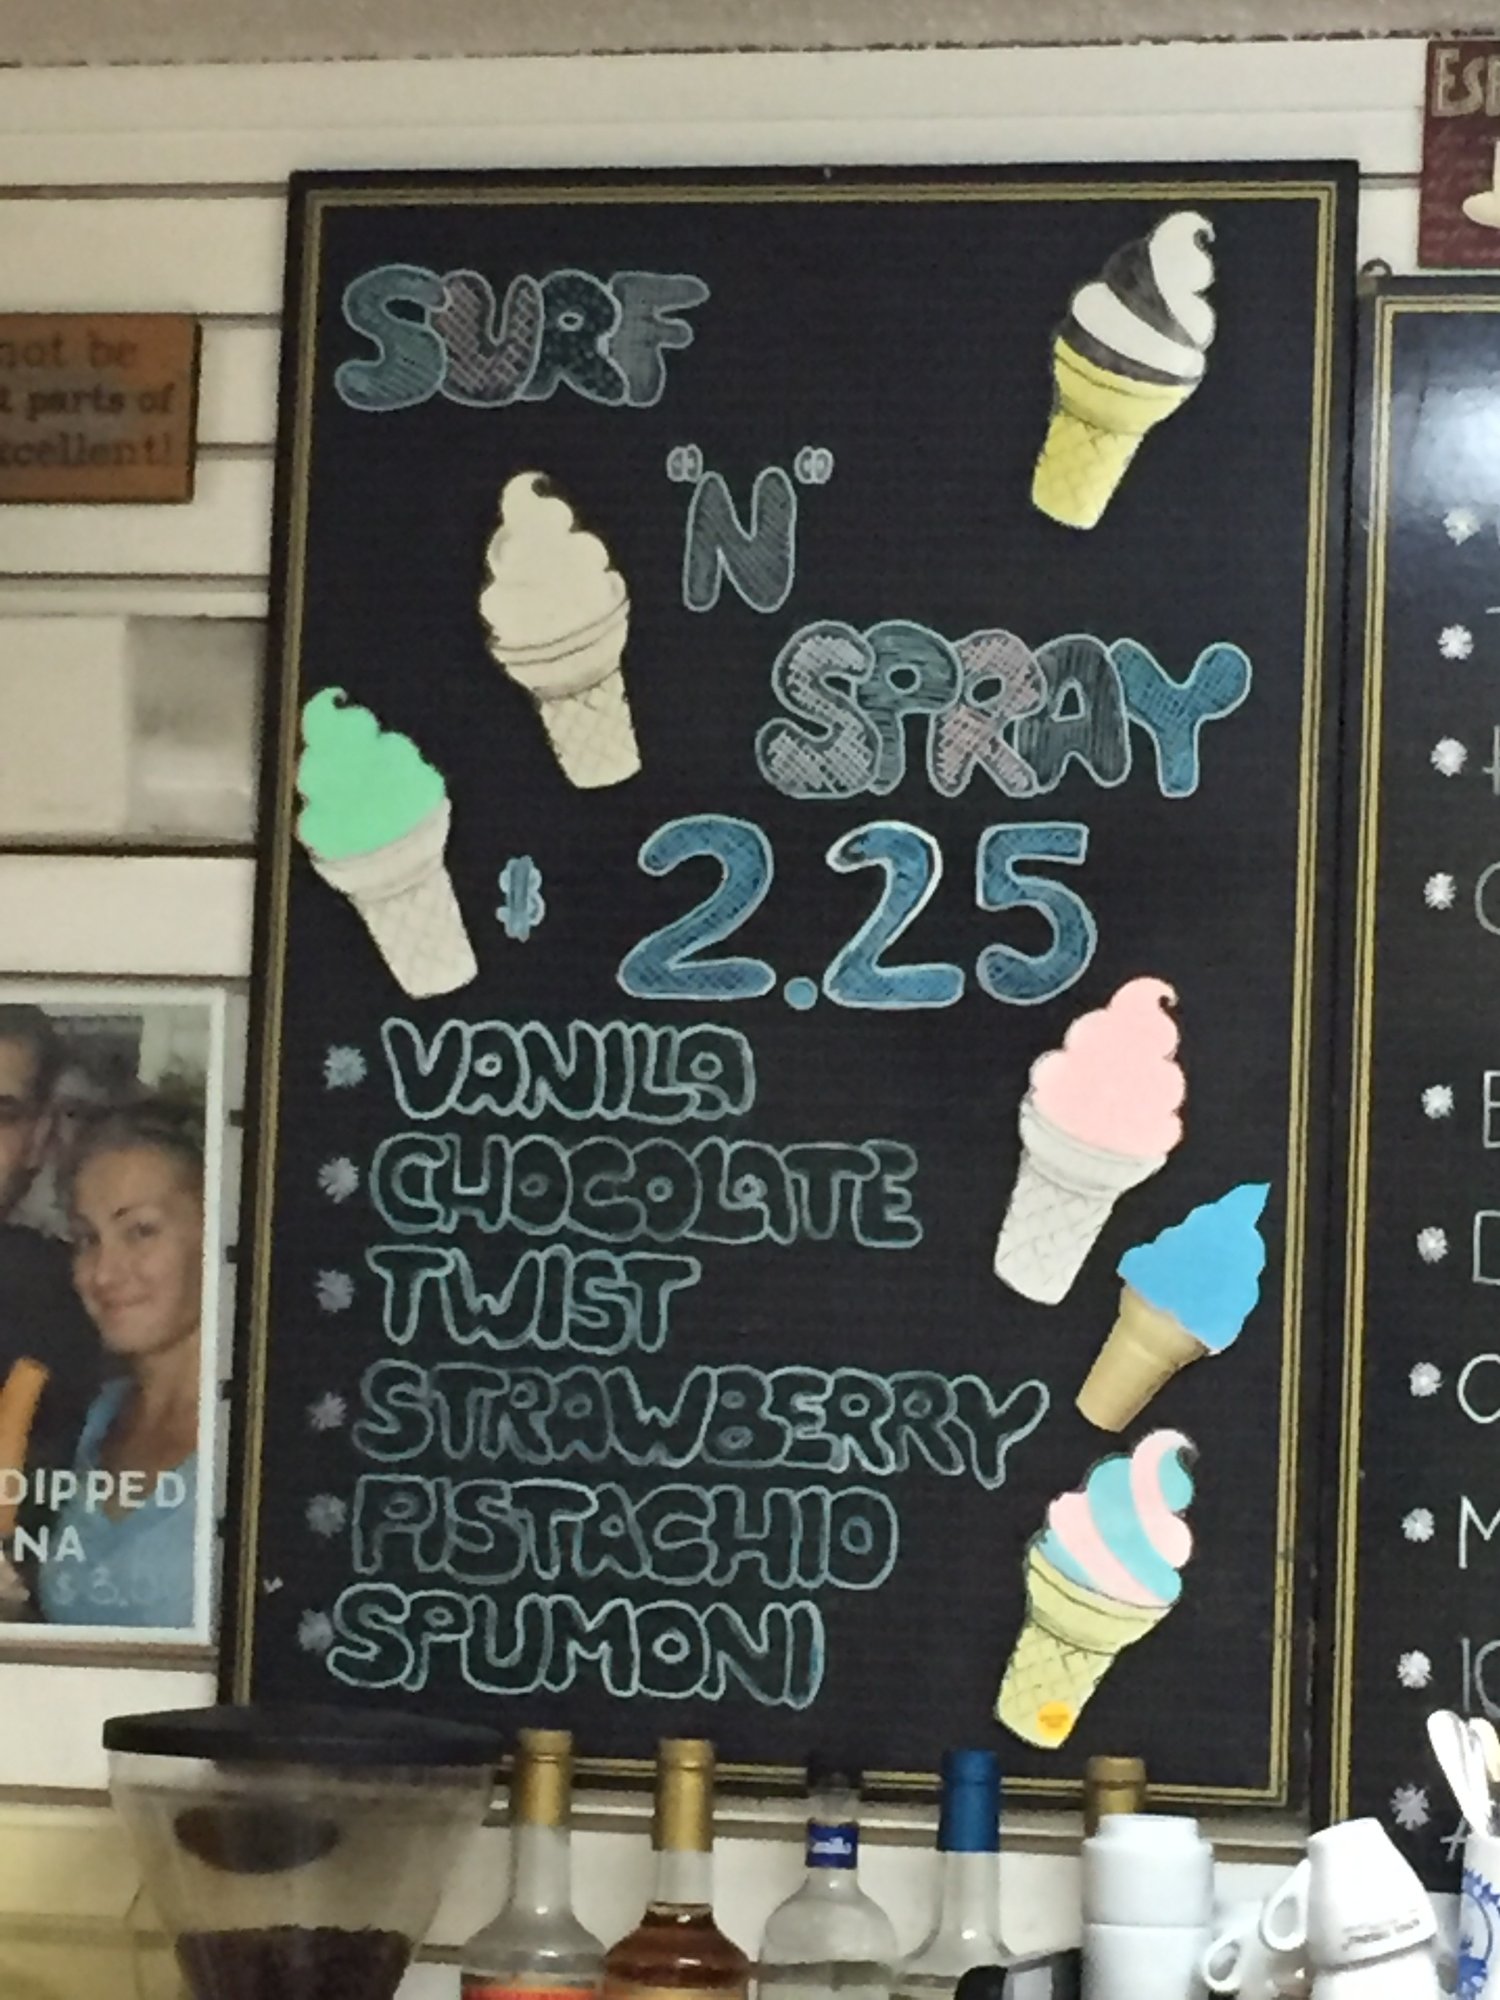 not be
parts of
xcellent!
SURF
"N"
SPRAY
$ 2.25
* VANILLA
* CHOCOLATE
* TWIST
* STRAWBERRY
* PISTACHIO
* SPUMONI
DIPPED
NA
ESP